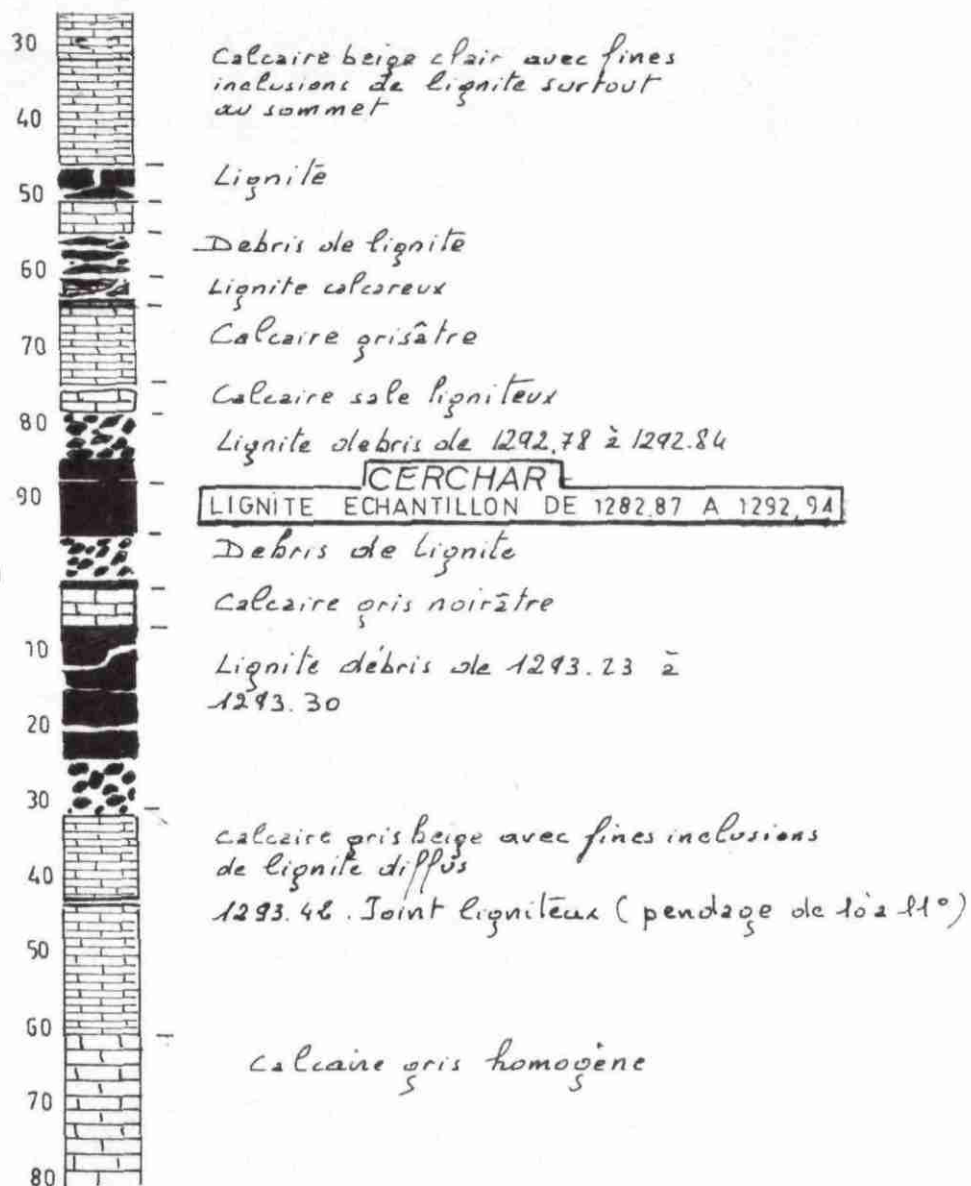 30
Calcaire beige clair avec fines
inclusions de lignite surtout
au sommet
40
Lignite
50
Debris de lignite
60
Lignite calcareux
Calcaire grisâtre
70
Calcaire sale ligniteux
80
Lignite debris de 1292,78 à 1292.84
CERCHAR
90
LIGNITE ECHANTILLON DE 1282,87 A 1292,94
Debris de Lignite
Calcaire gris noirâtre
10
Lignite débris de 1293.23 à
1293.30
20
30
Calcaire gris beige avec fines inclusions
de lignite diffus
40
1293.42. Joint ligniteux (pendage de 10 à 11°)
50
60
Calcaire gris homogène
70
80